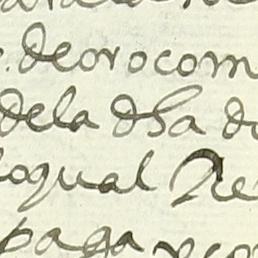 de oro com
de la dha do
loqual Re
paga y co